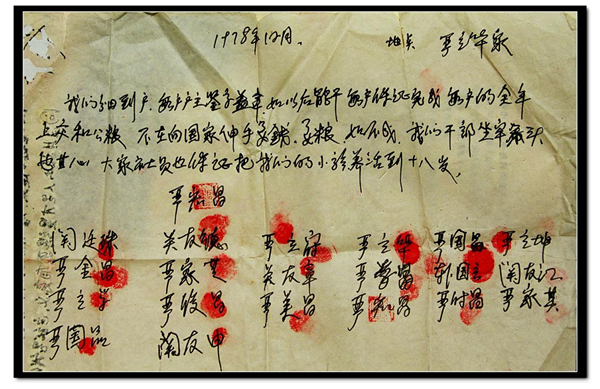 1978年12月. 地点 严立华家
我们分田到户 每户户主签字盖章 如以后能干 每户保证完成每户的全年
上交和公粮 不在向国家伸手要钱要粮. 如不成, 我们干部坐牢杀头
也干心 大家社员也保证把我们的小孩养活到十八岁.
严宏昌
关廷珠 关友德 严立符 严立华 严国昌 严立坤
严金昌 严家芝 关友章 严学昌 韩国云 关友江
严立学 严俊昌 严美昌 严宏昌 严付昌 严家其
严国品 关友申